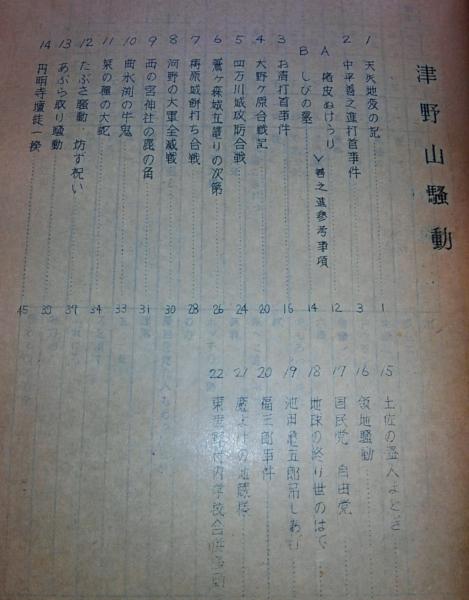 津野山騒動
1 天災地変の記 1
2 中平善之進打首事件 3
A 楮皮ぬけうり 12
B しびの墓 14
善之進参考事項
3 お斎打首事件 16
4 大野ヶ原合戦記 20
5 四万川城攻防合戦 24
6 鷲ヶ森城立籠りの次第 26
7 梼原城餅打ち合戦 28
8 河野の大軍全滅戦 30
9 西の宮神社の鹿の角 31
10 曲水渕の牛鬼 33
11 菜の種の大蛇 34
12 たぶさ騒動 坊す呪い
13 あぶら取り騒動 39
14 円明寺壇徒一揆 45
15 土佐の
16 領地騒動
17 国民党 自由党
18 地球の終り世の
19 池田亀五郎
20 福三郎事件
21 魔よけの地蔵様
22 村内学校合併騒動